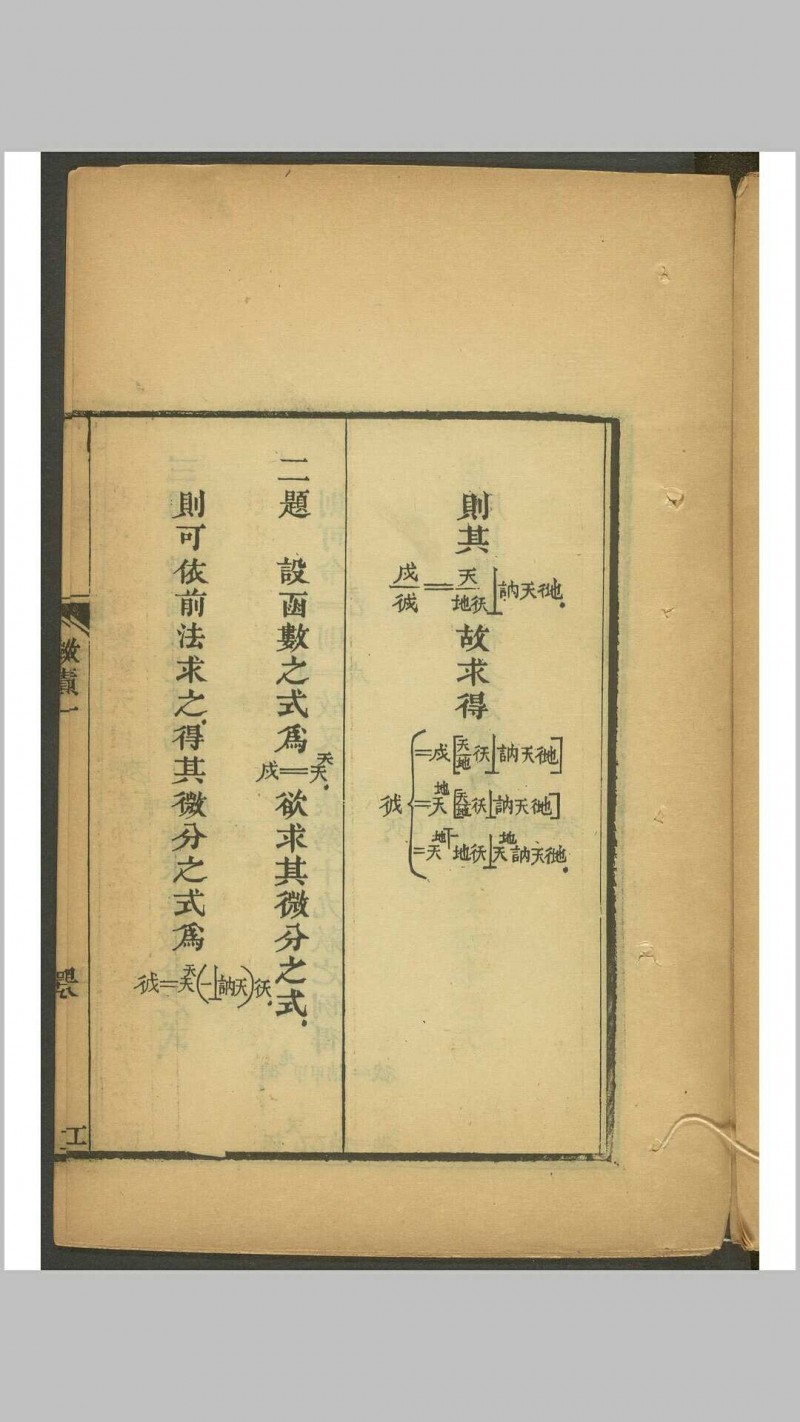 則其
戌/⿰彳戌＝天/地⿰彳天⊥訥天⿰彳地.
故求得
⿰彳戌{＝戌[天/地⿰彳天⊥訥天⿰彳地]
＝天^地[天/地⿰彳天⊥訥天⿰彳地]
＝天^(地丅一)地⿰彳天⊥天^地訥天⿰彳地.
二題　設函數之式爲戌＝天^天.欲求其微分之式.
則可依前法求之.得其微分之式爲
⿰彳戌＝天^天(一⊥訥天)⿰彳天.